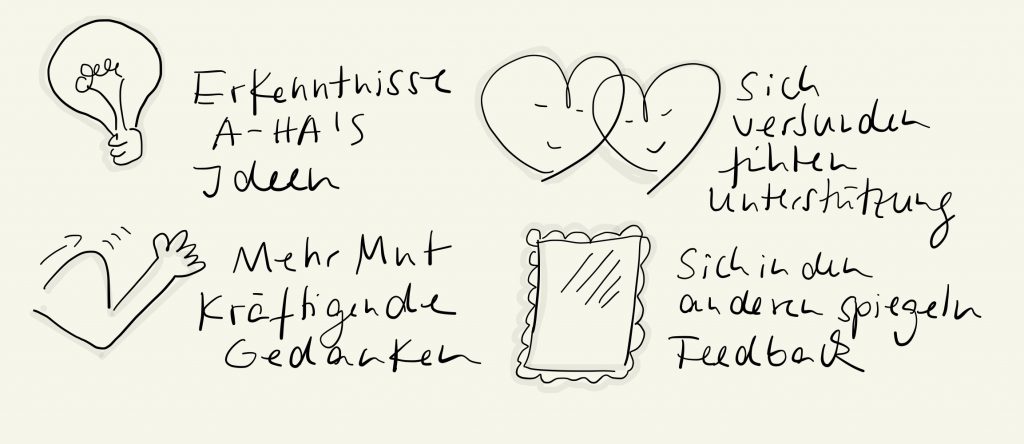 Erkenntnisse
A-HA's
Ideen
Sich
verbunden
fühlen
Unterstützung
Mehr Mut
Kräftigende
Gedanken
Sich in den
anderen spiegeln
Feedback